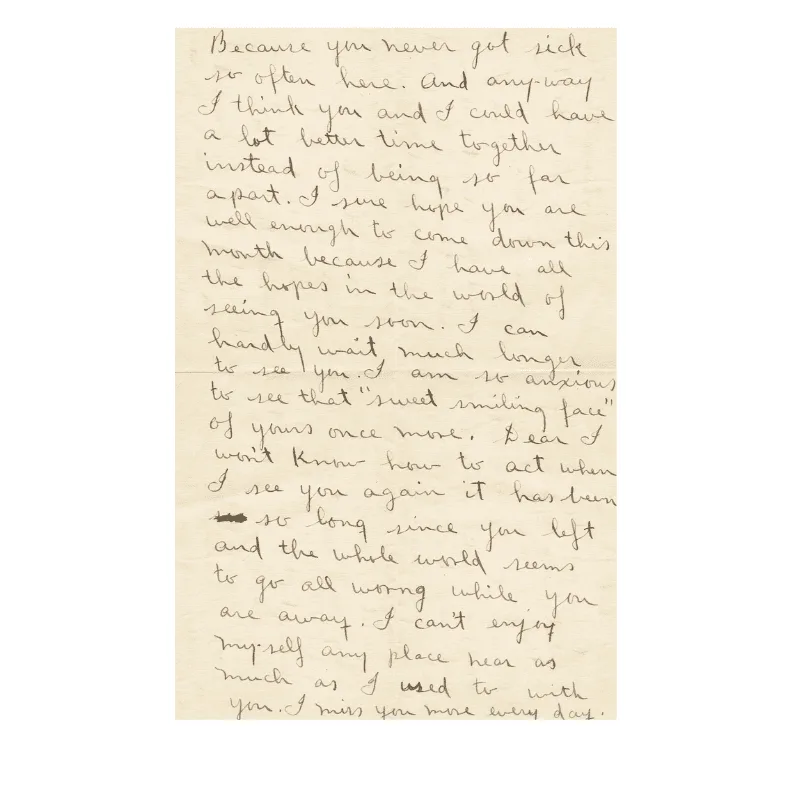 Because you never got sick
so often here. And any-way
I think you and I could have
a lot better time together
instead of being so far
apart. I sure hope you are
well enough to come down this
month because I have all
the hopes in the world of
seeing you soon. I can
hardly wait much longer
to see you. I am so anxious
to see that "sweet smiling face"
of yours once more. Dear I
won't know how to act when
I see you again it has been
so long since you left
and the whole world seems
to go all worng while you
are away. I can't enjoy
my-self any place near as
much as I used to with
you. I miss you more every day.